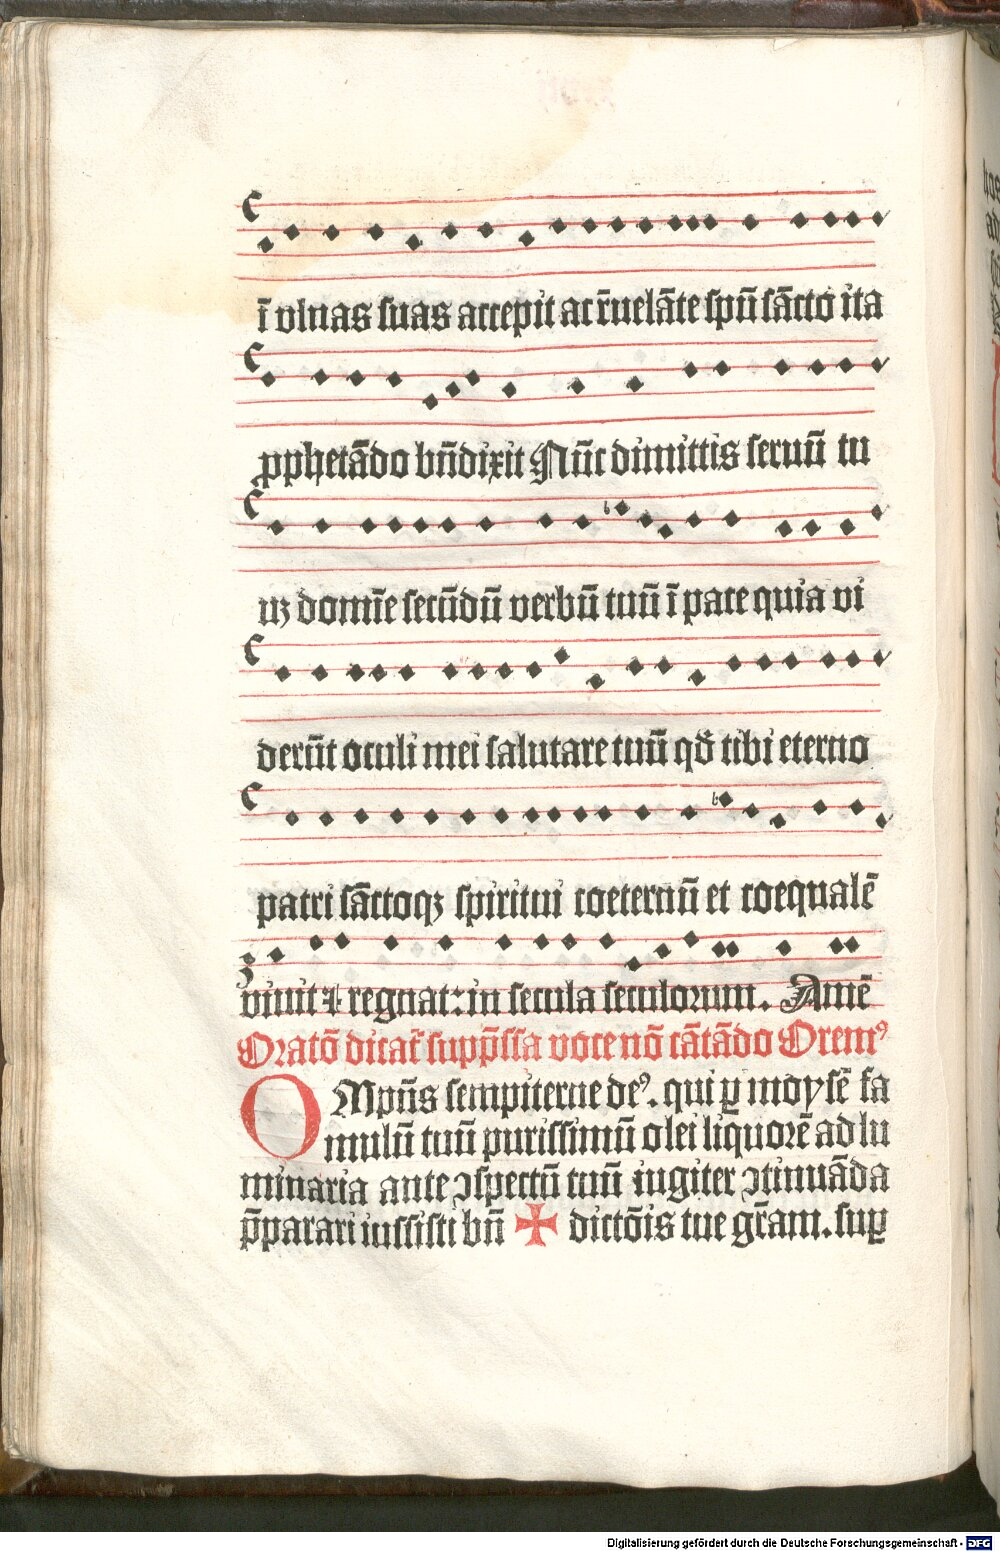 ī vlnas suas accepit ac r̄uelāte spū sācto ita
ꝓphetādo bn̄dixit Nūc dimittis seruū tu
uꝫ domīe secūdū verbū tuū ī pace quia vi
derūt oculi mei salutare tuū qd̄ tibi eterno
patri sāctoqꝫ spiritui coeternū et coequalē
viuit ⁊ regnat: in secula seculorum. Amē
Oratō dicat᷑ supp̄ssa voce nō cātādo Oremꝰ
OMpn̄s sempiterne deꝰ. qui ꝑ moysē fa
mulū tuū purissimū olei liquorē ad lu
minaria ante ꝯspectū tuū iugiter ꝯtinuāda
p̄parari iussisti bn̄ ✠ dictōis tue gr̄am. suꝑ
Digitalisierung gefördert durch die Deutsche Forschungsgemeinschaft - DFG